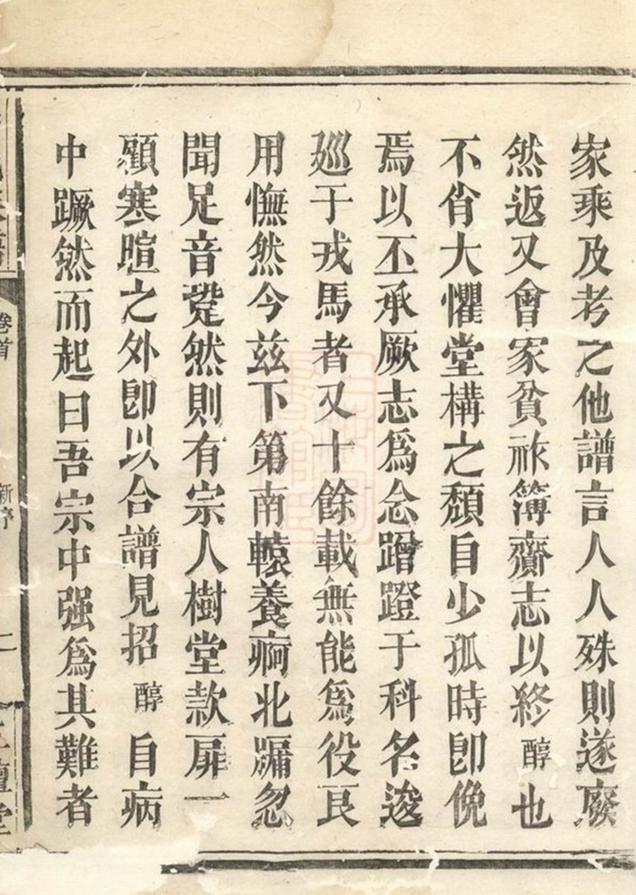 家乘及考之他譜言人人殊則遂廢
然返又會家貧祚簿齎志以終醇也
不省大懼堂構之頹自少孤時卽俛
焉以丕承厥志爲念蹭蹬于科名逡
廵于戎馬者又十餘載無能爲役良
用憮然今兹下第南轅養痾北牖忽
聞足音跫然則有宗人樹堂款扉一
顧寒暄之外卽以合譜見招醇自病
中蹶然而起曰吾宗中强爲其難者
卷首
新序
二